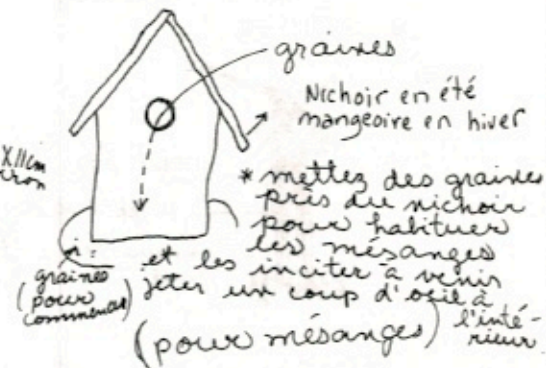 graines
Nichoir en été
mangeoire en hiver
* mettez des graines
près du nichoir
pour habituer
les mésanges
et les inciter à venir
jeter un coup d'oeil à
l'inté-
rieur
(pour mésanges)
graines
(pour
commencer)